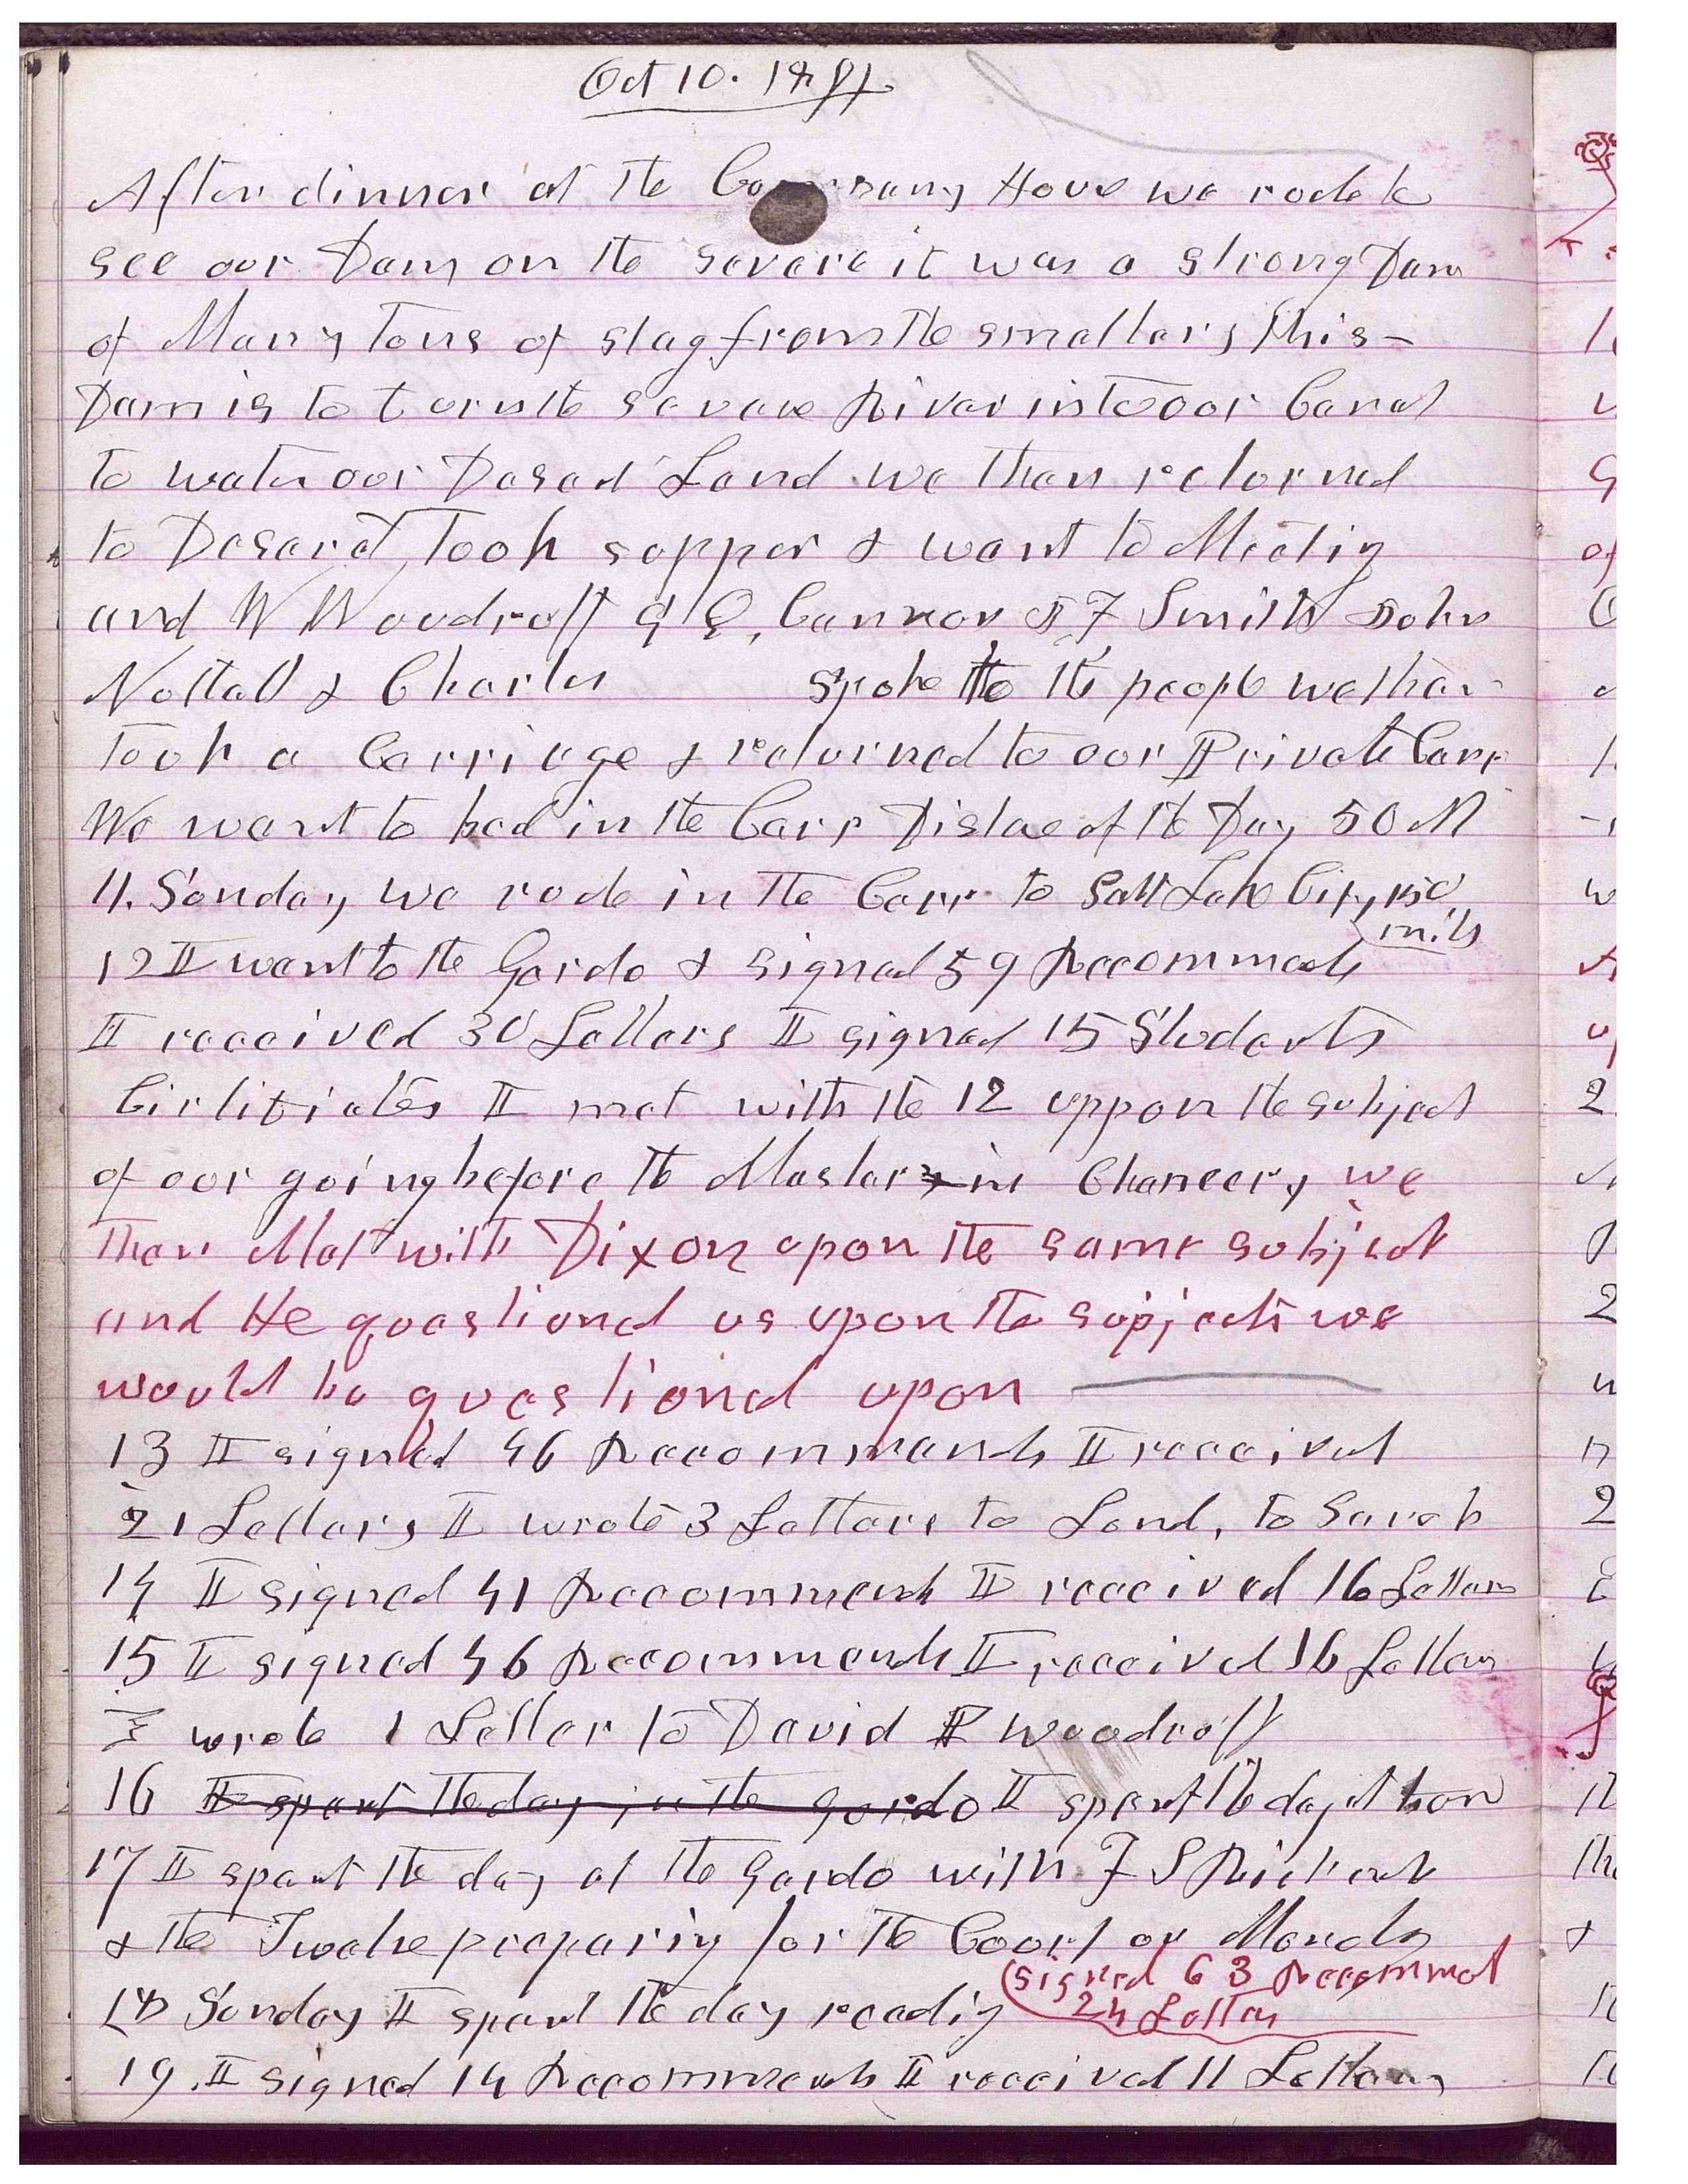 Oct 10. 1891
After dinner at the Company House we rode to
see our Dam on the Severe it was a strong Dam
of Many tons of slag from the smelters, This
Dam is to turn the Severe River into our Canal
to water our Desert Land we then returned
to Deseret, Took supper & went to Meeting
and W Woodruff G Q. Cannon J F Smith John
Nuttall & Charles spoke to the people we then
Took a Carriage & returned to our Private Carr
We went to bed in the Carr, Distace of the Day 50 M
11. Sunday we rode in the Carr to Salt Lake City, 150
mils
12 I went to the Gardo & signed 59 Recommeds
I received 30 Letters I signed 15 Studats
Cirtifiates I met with the 12 uppon the subject
of our going before the Master in Chancery we
then Met with Dixon upon the same subject
and He questiond us upon the supjects we
would be questiond upon
13 I signed 46 Recommends I received
21 Letters, I wrote 3 Letters to Lond, to Sarah
14 I signed 41 Recommends I received 16 Letters
15 I signed 46 Recommends I received 16 Letters
I wrote 1 Letter to David P Woodruff
16 I spent the day in the gardo I spent the day at hom
17 I spent the day at the Gardo with F S Richards
& the Twelve preparing for the Court on Monday
signed 63 Recommed
18 Sunday I spent the day readig
24 Letters
19. I signed 14 Recommends I received 11 Letters